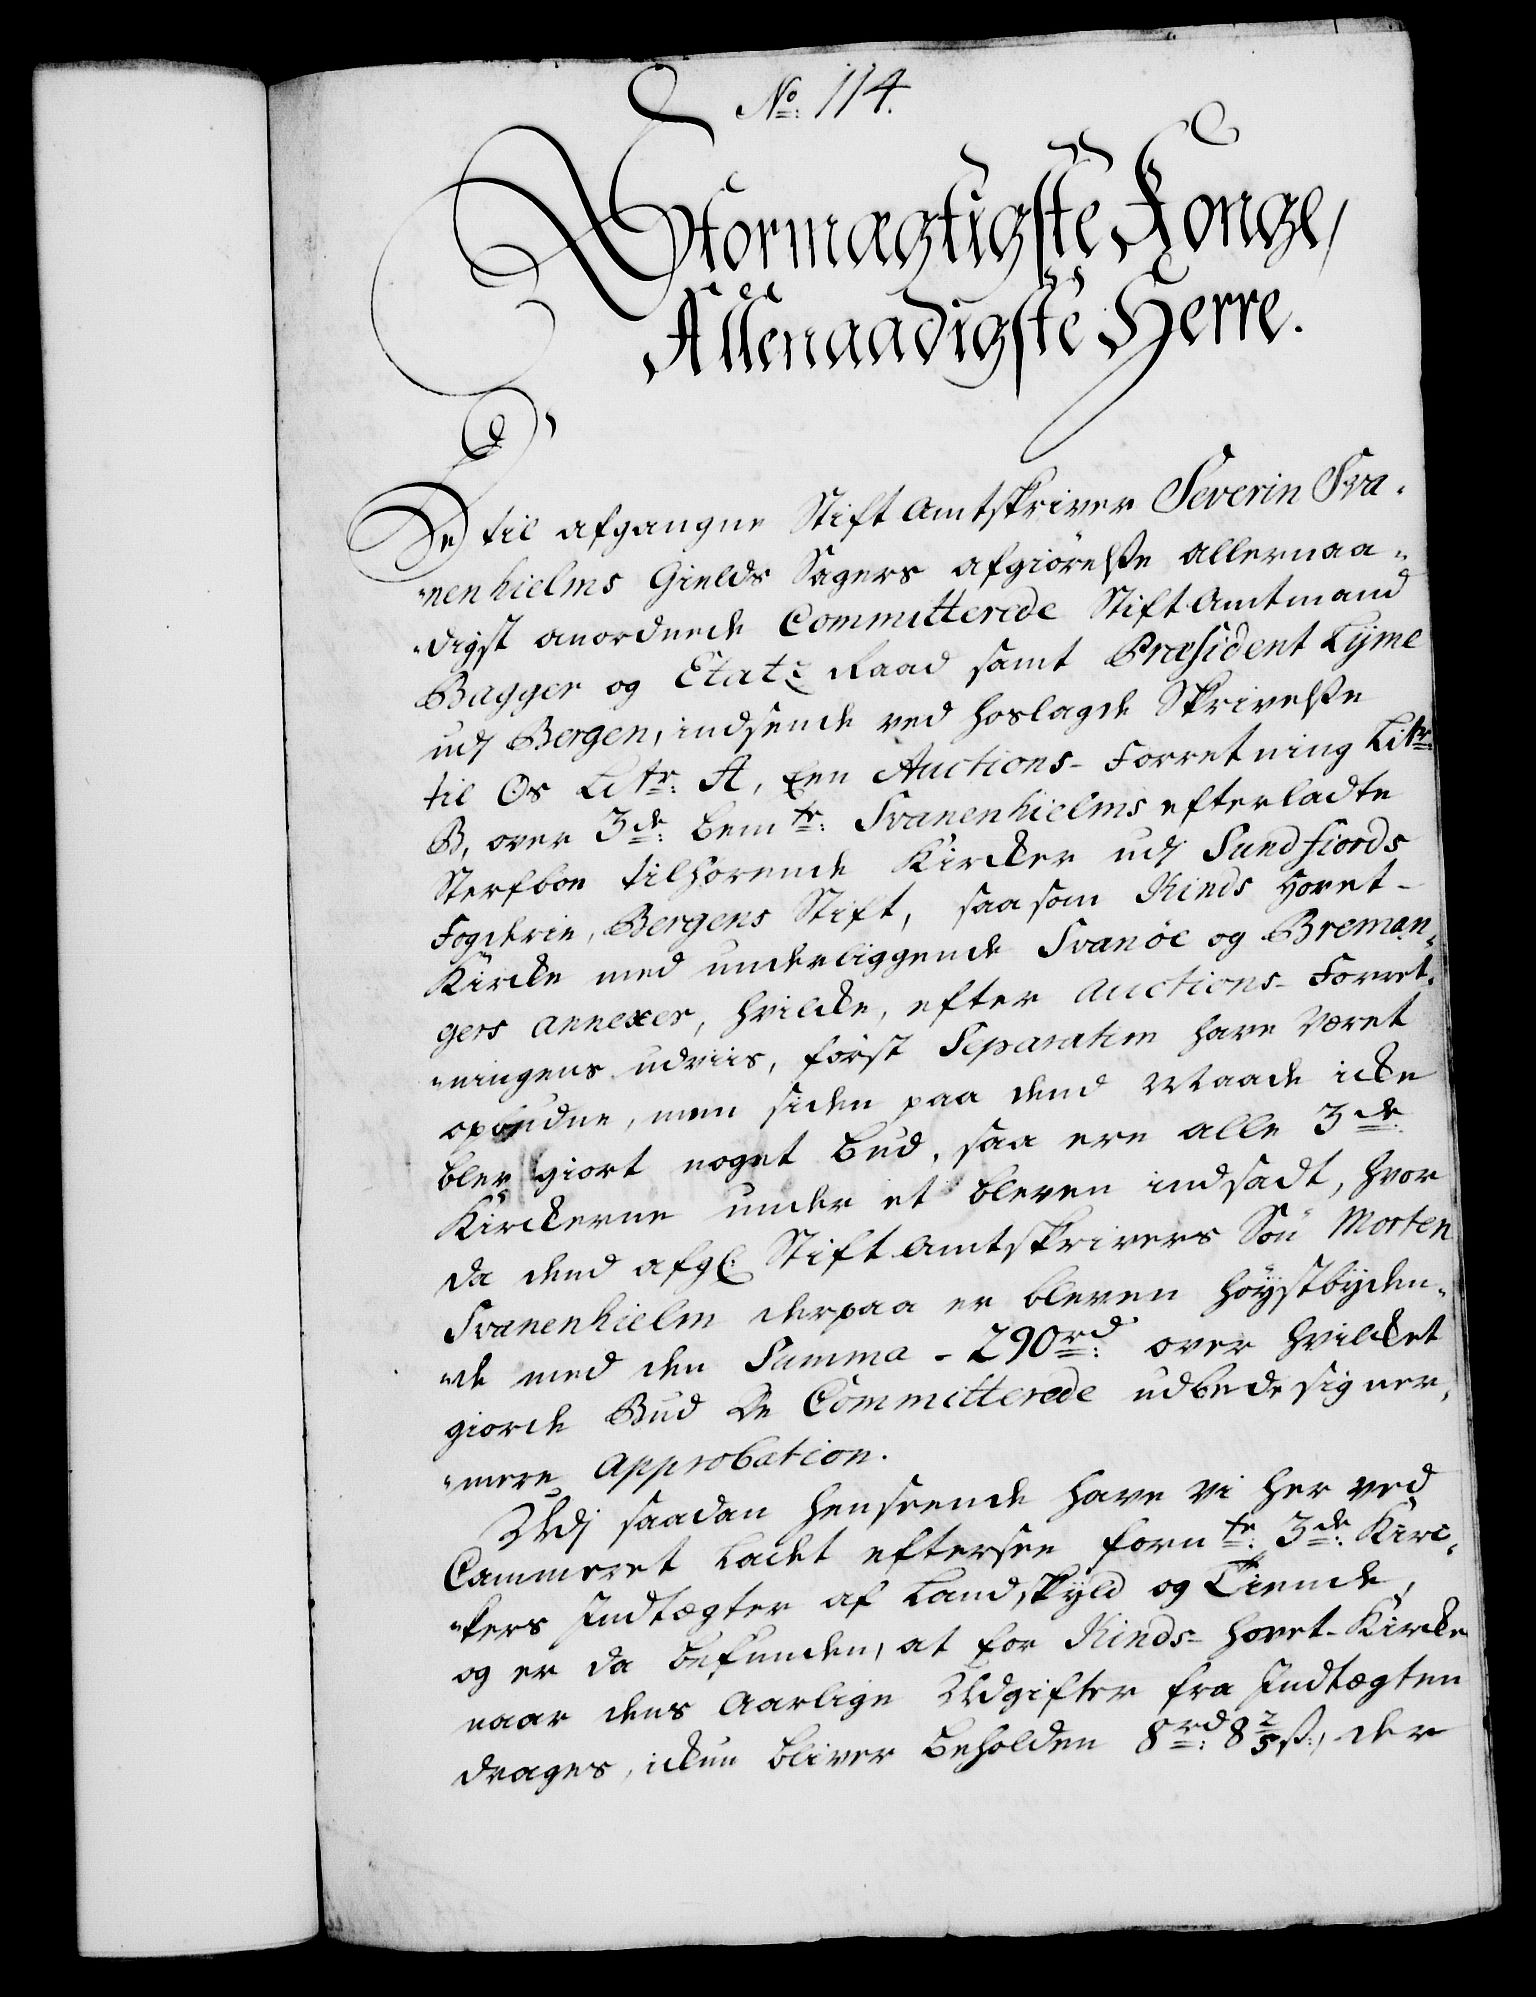 No: 114.
Stormagtigste Konge,
Allernaadigste Herre.
De til afgangne Stift Amtskriver Severin Sva-
"nenhielms Gields Sagers afgiörelße allernaa-
"digst anordnede Committerede Stift Amtmand
Bagger og Etatz Raad samt Præsident Lÿme
udj Bergen, indsende ved hoslagde Skrivelße
til Os Litr: A, Een Auctions-Forretning Litr:
B, over 3de: bemte: Svanenhielms efterladte
Sterfboe tilhörende Kircker udj Sundfiords
Fogderie, Bergens Stift, saasom Kinds Hovet-
Kircke med underliggende Svanöe og Breman-
gers annexer, hvilcke, efter Auctions-Forret-
"ningens udviis, först Separatim have været
opbudne, men siden paa dend Maade icke
blev giort noget bud, saa ere alle 3de
Kirckerne under et bleven indsadt, hvor
da dend afgl: Stift Amtskrivers Sön Morten
Svanenhielm derpaa er bleven höystbÿden-
"de med den Summa - 290rd: over hvilcket
giorde Bud De Committerede udbede sig ner-
"mere Approbation.
Udj saadan henseende have vi her ved
Cammeret ladet eftersee fornte: 3de: Kirc-
"kers Indtægter af Landskÿld og Tiende,
og er da befunden, at for Kinds-hovet-Kircke
naar dens Aarlige Udgifter fra Indtægten
drages, ickun bliver beholden 8rd: 8 2/5 ß:, der